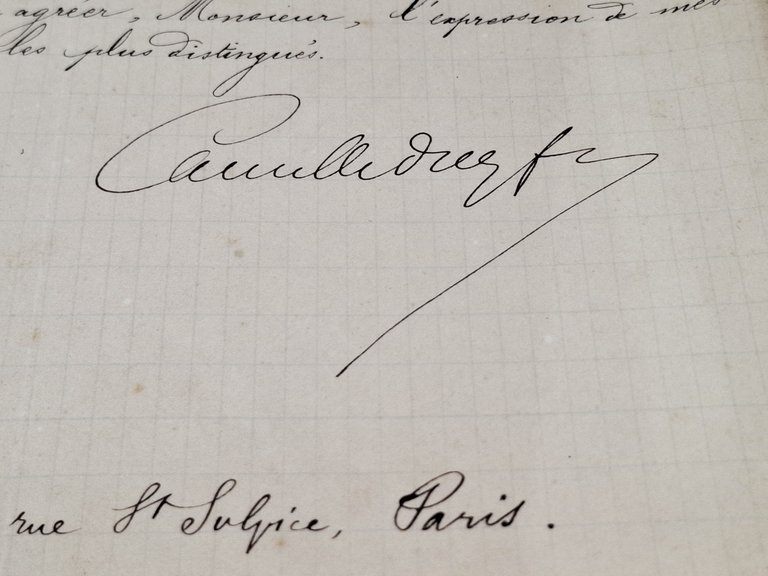 agréer, Monsieur, l'expression de mes
les plus distingués.
Camille Dreyfus
rue St Sulpice, Paris.